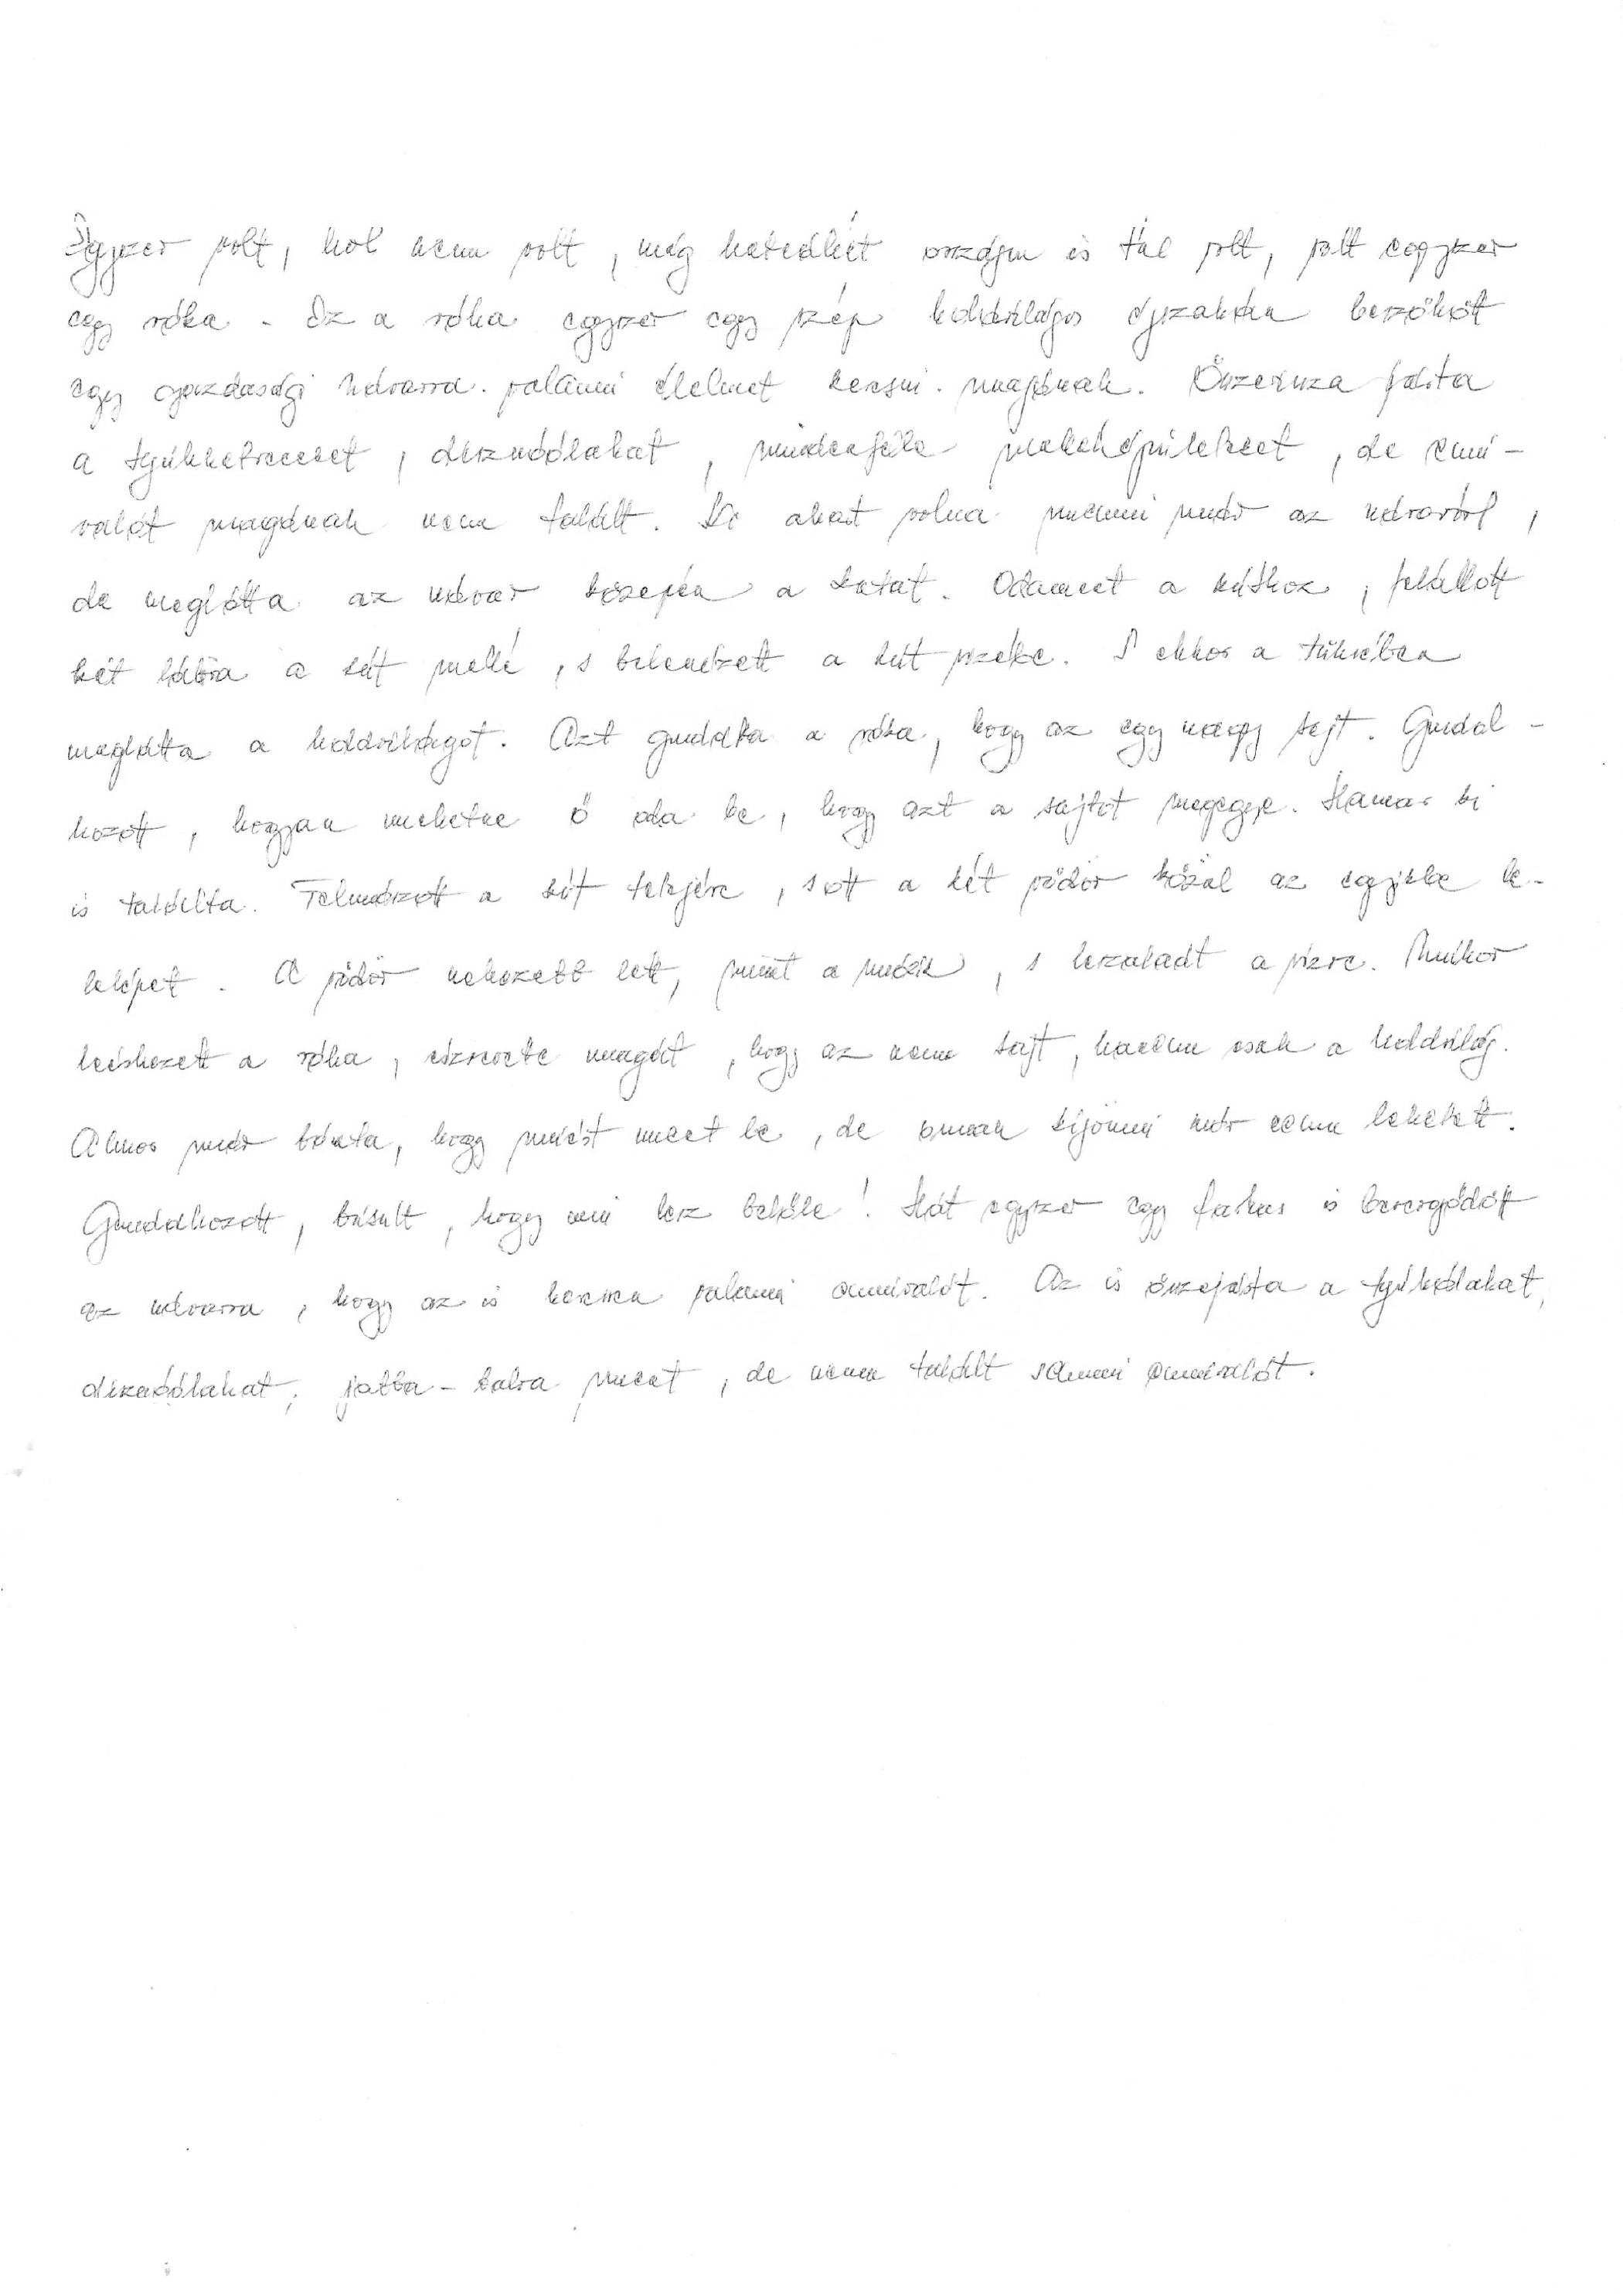 Egyszer volt, hol nem volt, még hetedhét országon is túl volt, volt egyszer
egy róka. Ez a róka egyszer egy szép holdvilágos éjszakán beszökött
egy gazdasági udvarra valami élelmet keresni magának. Össze-vissza járta
a tyúkketreceket, disznóólakat, mindenféle melléképületeket, de enni-
valót magának nem talált. Ki akart volna menni már az udvarból,
de meglátta az udvar közepén a kutat. Odament a kúthoz, felállott
két lábra a kút mellé, s belenézett a kút vizébe. S ekkor a tükrében
meglátta a holdvilágot. Azt gondolta a róka, hogy az egy nagy sajt. Gondol-
kozott, hogyan mehetne ő oda be, hogy azt a sajtot megegye. Hamar ki
is találta. Felmászott a kút tetejére, s ott a két vödör közül az egyikbe be-
lelépett. A vödör nehezebb lett, mint a másik, s leszaladt a vízre. Mikor
leérkezett a róka, észrevette magát, hogy az nem sajt, hanem csak a holdvilág.
Akkor már bánta, hogy miért ment be, de onnan kijönni már nem lehetett.
Gondolkozott, búsult, hogy mi lesz belőle! Hát egyszer egy farkas is bevergődött
az udvarra, hogy az is keressen valami ennivalót. Az is összejárta a tyúkólakat,
disznóólakat, jobbra-balra ment, de nem talált semmi ennivalót.